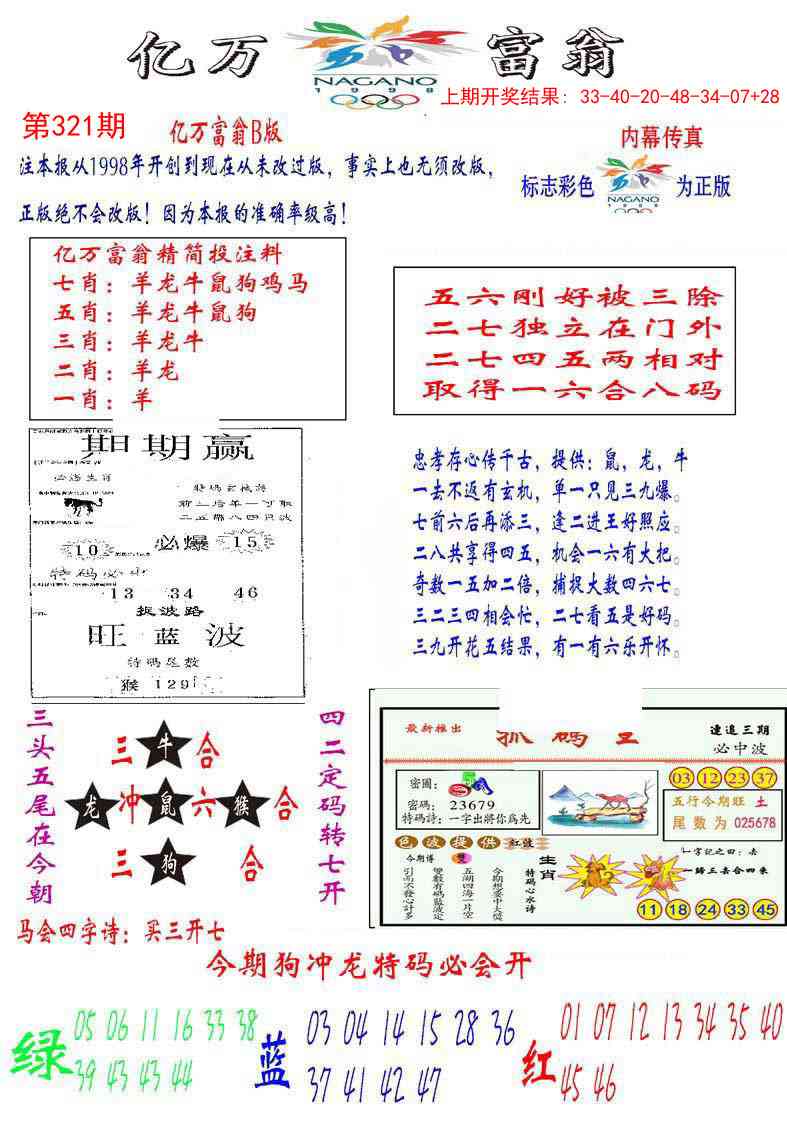 亿万
NAGANO
1998
富翁
上期开奖结果: 33-40-20-48-34-07+28
第321期
亿万富翁B版
内幕传真
注本报从1998年开创到现在从未改过版，事实上也无须改版，
正版绝不会改版！因为本报的准确率级高！
标志彩色
NAGANO
为正版
亿万富翁精简投注料
七肖：羊龙牛鼠狗鸡马
五肖：羊龙牛鼠狗
三肖：羊龙牛
二肖：羊龙
一肖：羊
五六刚好被三除
二七独立在门外
二七四五两相对
取得一六合八码
期期赢
必选生肖
特码玄机诗
必爆
10
15
特码必中
13 34 46
捉波路
旺蓝波
特码尾数
猴 129
忠孝存心传千古，提供：鼠，龙，牛
一去不返有玄机，单一只见三九爆。
七前六后再添三，逢二进王好照应。
二八共享得四五，机会一六有大把。
奇数一五加二倍，捕捉大数四六七。
三二三四相会忙，二七看五是好码。
三九开花五结果，有一有六乐开怀。
三头五尾在今朝
三 牛 合
龙 冲 鼠 六 猴 合
三 狗 合
四二定码转七开
马会四字诗：买三开七
最新推出
抓码王
连追三期
必中波
密圖：
密碼：23679
特码詩：一字出將你爲先
03 12 23 37
五行今期旺 土
尾数为 025678
色波提供 红波
今期博 雙
引而不發心計多
雙數有碼藍波定
五湖四海一片空
今期想要中大獎
特码心水诗
生肖
一字记之曰：去
一歸三去合四来
11 18 24 33 45
今期狗冲龙特码必会开
绿
05 06 11 16 33 38
39 43 43 44
蓝
03 04 14 15 28 36
37 41 42 47
红
01 07 12 13 34 35 40
45 46